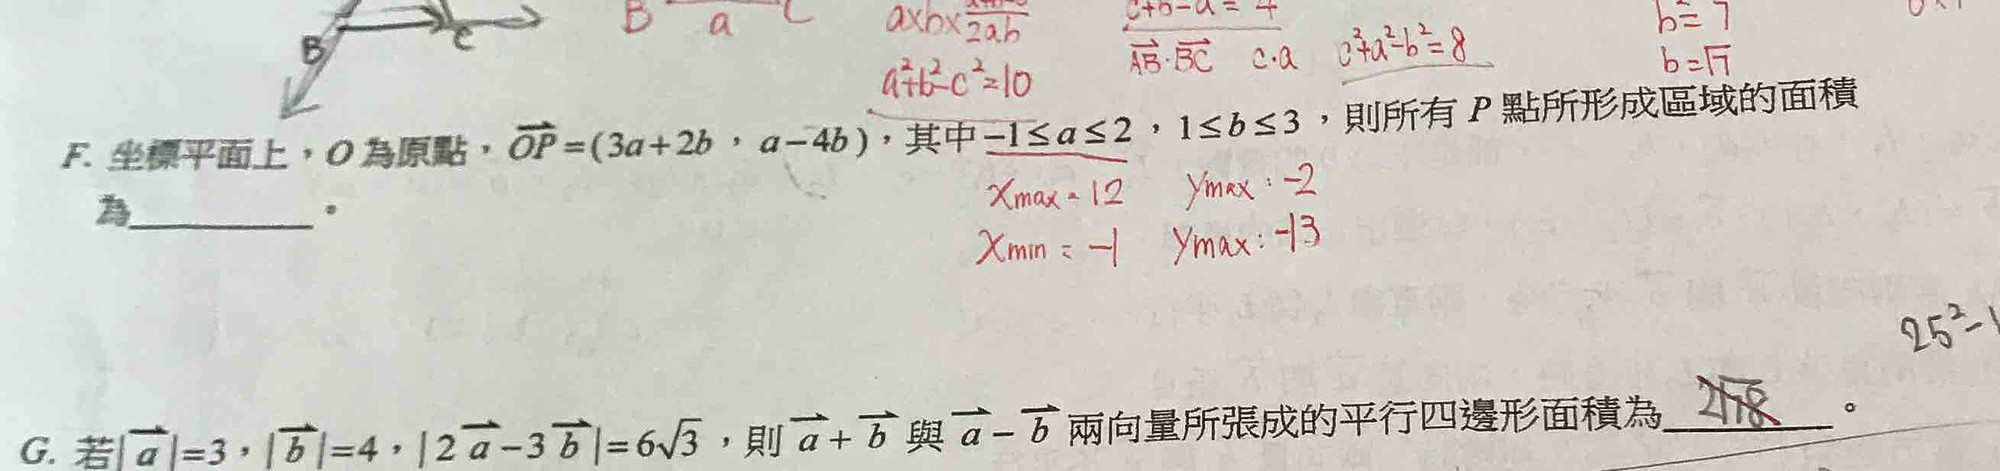 B
c
B a C
a×b×
2ab
a²+b²-c²=10
c+b-a=4
AB·BC c·a c²+a²-b²=8
b²=7
b=√7
F. 坐標平面上，O 為原點，OP=(3a+2b，a-4b)，其中 -1≤a≤2，1≤b≤3，則所有 P 點所形成區域的面積
為＿＿＿＿＿。
xmax=12 ymax:-2
xmin=-1 ymax:-13
25²-1
G. 若|a|=3，|b|=4，|2a-3b|=6√3，則 a+b 與 a-b 兩向量所張成的平行四邊形面積為 2√18 。